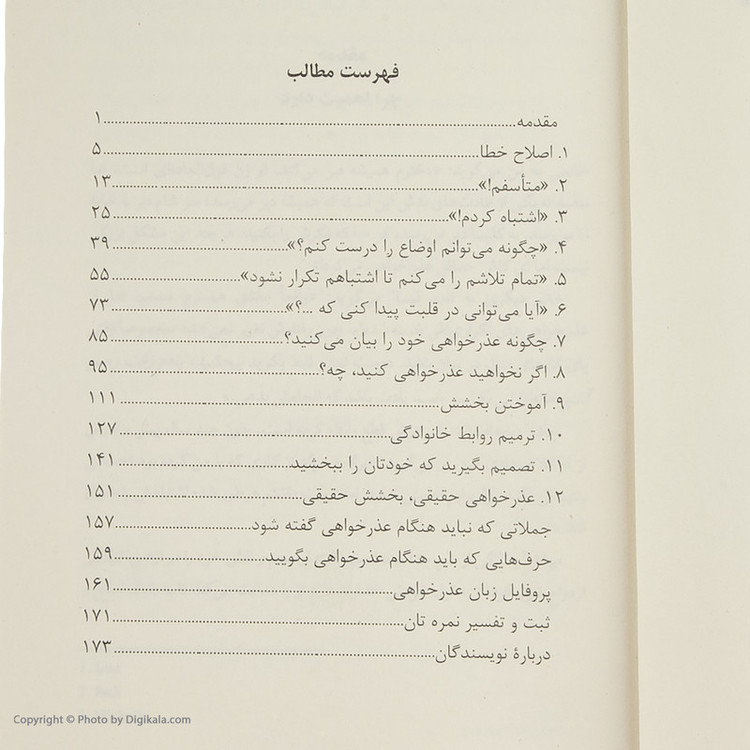 فهرست مطالب
مقدمه......۱
۱. اصلاح خطا......۵
۲. «متأسفم!»......۱۳
۳. «اشتباه کردم!»......۲۵
۴. «چگونه می‌توانم اوضاع را درست کنم؟»......۳۹
۵. «تمام تلاشم را می‌کنم تا اشتباهم تکرار نشود»......۵۵
۶. «آیا می‌توانی در قلبت پیدا کنی که ...؟»......۷۳
۷. چگونه عذرخواهی خود را بیان می‌کنید؟......۸۵
۸. اگر نخواهید عذرخواهی کنید، چه؟......۹۵
۹. آموختن بخشش......۱۱۱
۱۰. ترمیم روابط خانوادگی......۱۲۷
۱۱. تصمیم بگیرید که خودتان را ببخشید......۱۴۱
۱۲. عذرخواهی حقیقی، بخشش حقیقی......۱۵۱
جملاتی که نباید هنگام عذرخواهی گفته شود......۱۵۷
حرف‌هایی که باید هنگام عذرخواهی بگویید......۱۵۹
پروفایل زبان عذرخواهی......۱۶۱
ثبت و تفسیر نمره تان......۱۷۱
دربارهٔ نویسندگان......۱۷۳
Copyright © Photo by Digikala.com